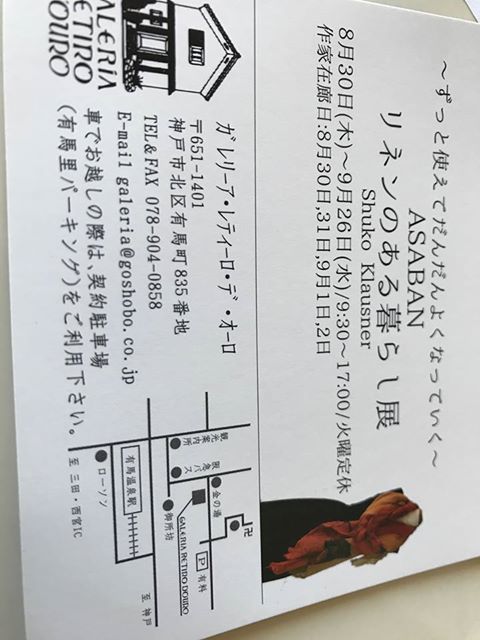 ～ずっと使えてだんだんよくなっていく～
ASABAN
リネンのある暮らし展
Shuko Klausner
8月30日(木)～9月26日(水)/9:30～17:00/火曜定休
作家在廊日:8月30日,31日,9月1日,2日
GALERIA
RETIRO
DOURO
ガレリーア・レティーロ・デ・オーロ
〒651-1401
神戸市北区有馬町835番地
TEL&FAX 078-904-0858
E-mail galeria@goshobo.co.jp
車でお越しの際は、契約駐車場
(有馬里パーキング)をご利用下さい。
観光案内所
阪急バス
金の湯
卍
GALERIA RETIRO DOURO
御所坊
P 有料
有馬温泉駅
ローソン
至 三田・西宮IC
至 神戸